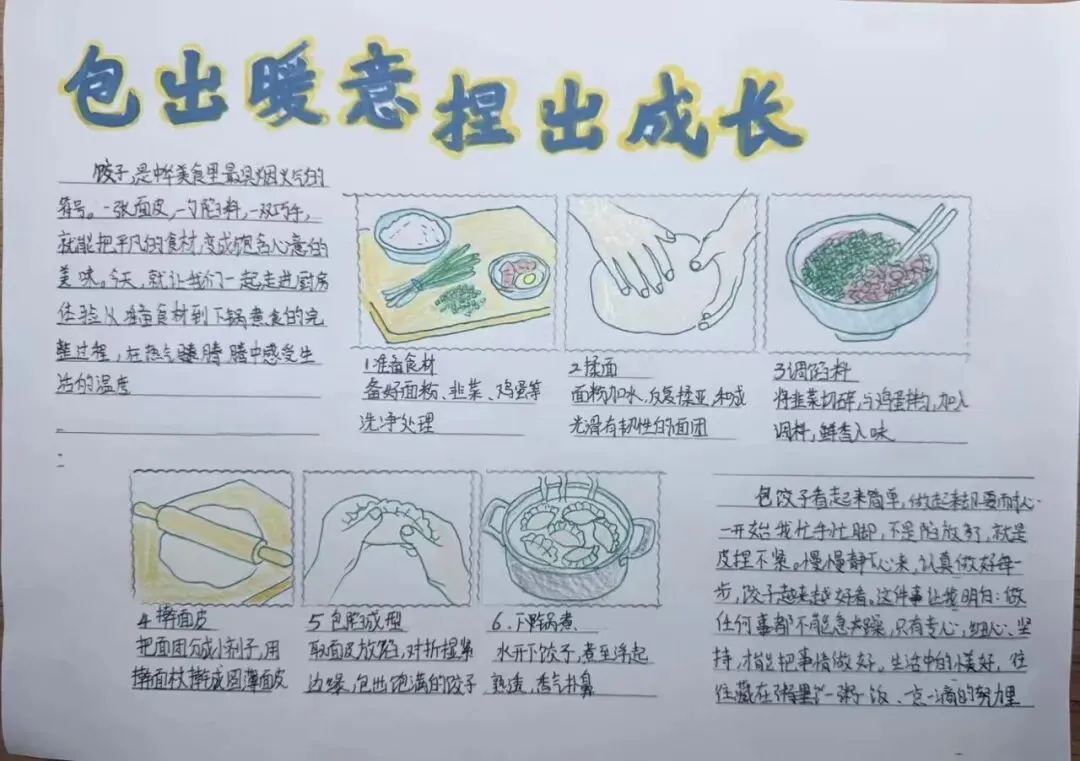 包出暖意 捏出成长
饺子,是中华美食里最具烟火气的
符号。一张面皮,一勺馅料,一双巧手,
就能把平凡的食材,变成饱含心意的
美味。今天,就让我们一起走进厨房
体验从准备食材到下锅煮食的完
整过程,在热气腾腾中感受生
活的温度
1准备食材
备好面粉、韭菜、鸡蛋等
洗净处理
2揉面
面粉加水,反复揉压,和成
光滑有韧性的面团
3调馅料
将韭菜切碎,与鸡蛋拌匀,加入
调料,鲜香入味
4擀面皮
把面团分成小剂子,用
擀面杖擀成圆薄面皮
5包成型
取面皮放馅,对折捏紧
边缘,包出饱满的饺子
6.下锅煮
水开下饺子,煮至浮起
熟透,香气扑鼻
包饺子看起来简单,做起来却要耐心
一开始我忙手忙脚,不是馅放多,就是
皮捏不紧。慢慢静下心来,认真做好每一
步,饺子越来越好看。这件事让我明白:做
任何事都不能急躁,只有专心,细心、坚
持,才能把事情做好。生活中的小美好,往
往藏在一粥一饭、一点一滴的努力里